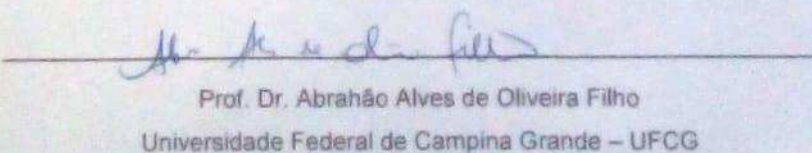 Prof. Dr. Abrahão Alves de Oliveira Filho
Universidade Federal de Campina Grande – UFCG